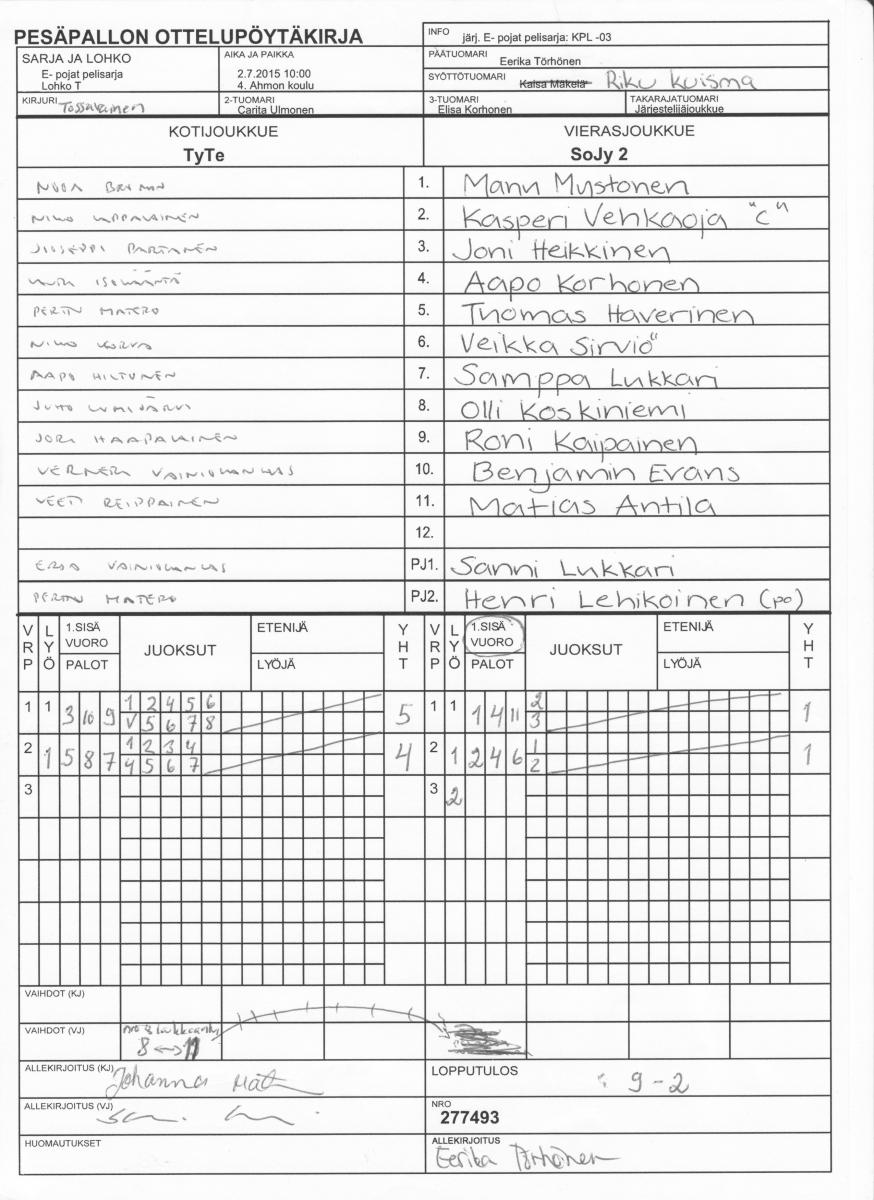 PESÄPALLON OTTELUPÖYTÄKIRJA
INFO järj. E- pojat pelisarja: KPL -03
SARJA JA LOHKO
E- pojat pelisarja
Lohko T
AIKA JA PAIKKA
2.7.2015 10:00
4. Ahmon koulu
PÄÄTUOMARI Eerika Törhönen
SYÖTTÖTUOMARI Kaisa Mäkelä Riku Kuisma
KIRJURI
2-TUOMARI
Carita Ulmonen
3-TUOMARI
Elisa Korhonen
TAKARAJATUOMARI
Järjestelijäjoukkue
KOTIJOUKKUE
TyTe
VIERASJOUKKUE
SoJy 2
1. Manu Mustonen
NIKO LAPPALAINEN 2. Kasperi Vehkaoja "C"
JUSEPPI PARTANEN 3. Joni Heikkinen
4. Aapo Korhonen
PERTTU MATERO 5. Tuomas Haverinen
NIKO 6. Veikka Sirviö
AAPO HILTUNEN 7. Samppa Lukkari
JUHO LUMIJÄRVI 8. Olli Koskiniemi
JORI HAAPALAINEN 9. Roni Kaipainen
VERNERI VAINIONKANGAS 10. Benjamin Evans
VEETI REIPPAINEN 11. Matias Antila
12.
VAINIONKANGAS PJ1. Sanni Lukkari
PERTTU MATERO PJ2. Henri Lehikoinen (po)
VRP LYÖ 1.SISÄ VUORO PALOT JUOKSUT ETENIJÄ LYÖJÄ YHT VRP LYÖ 1.SISÄ VUORO PALOT JUOKSUT ETENIJÄ LYÖJÄ YHT
1 1 3 10 9 1 2 4 5 6 5 1 1 1 4 11 2 1
V 5 6 7 8 3
2 1 5 8 7 1 2 3 4 4 2 1 2 4 6 1 1
4 5 6 7 2
3 3 2
VAIHDOT (KJ)
VAIHDOT (VJ)
8 <-> 11
ALLEKIRJOITUS (KJ) Johanna
LOPPUTULOS : 9 - 2
ALLEKIRJOITUS (VJ)
NRO
277493
HUOMAUTUKSET
ALLEKIRJOITUS
Eerika Törhönen